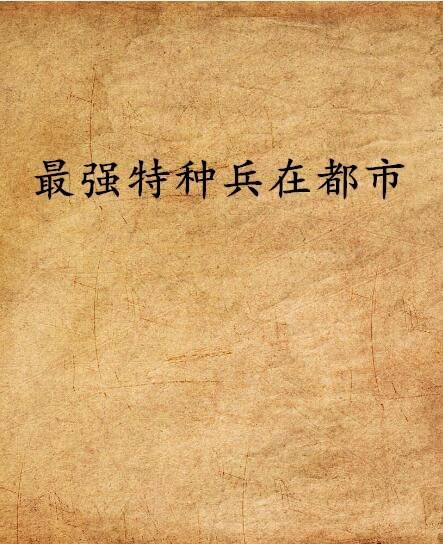 最强特种兵在都市